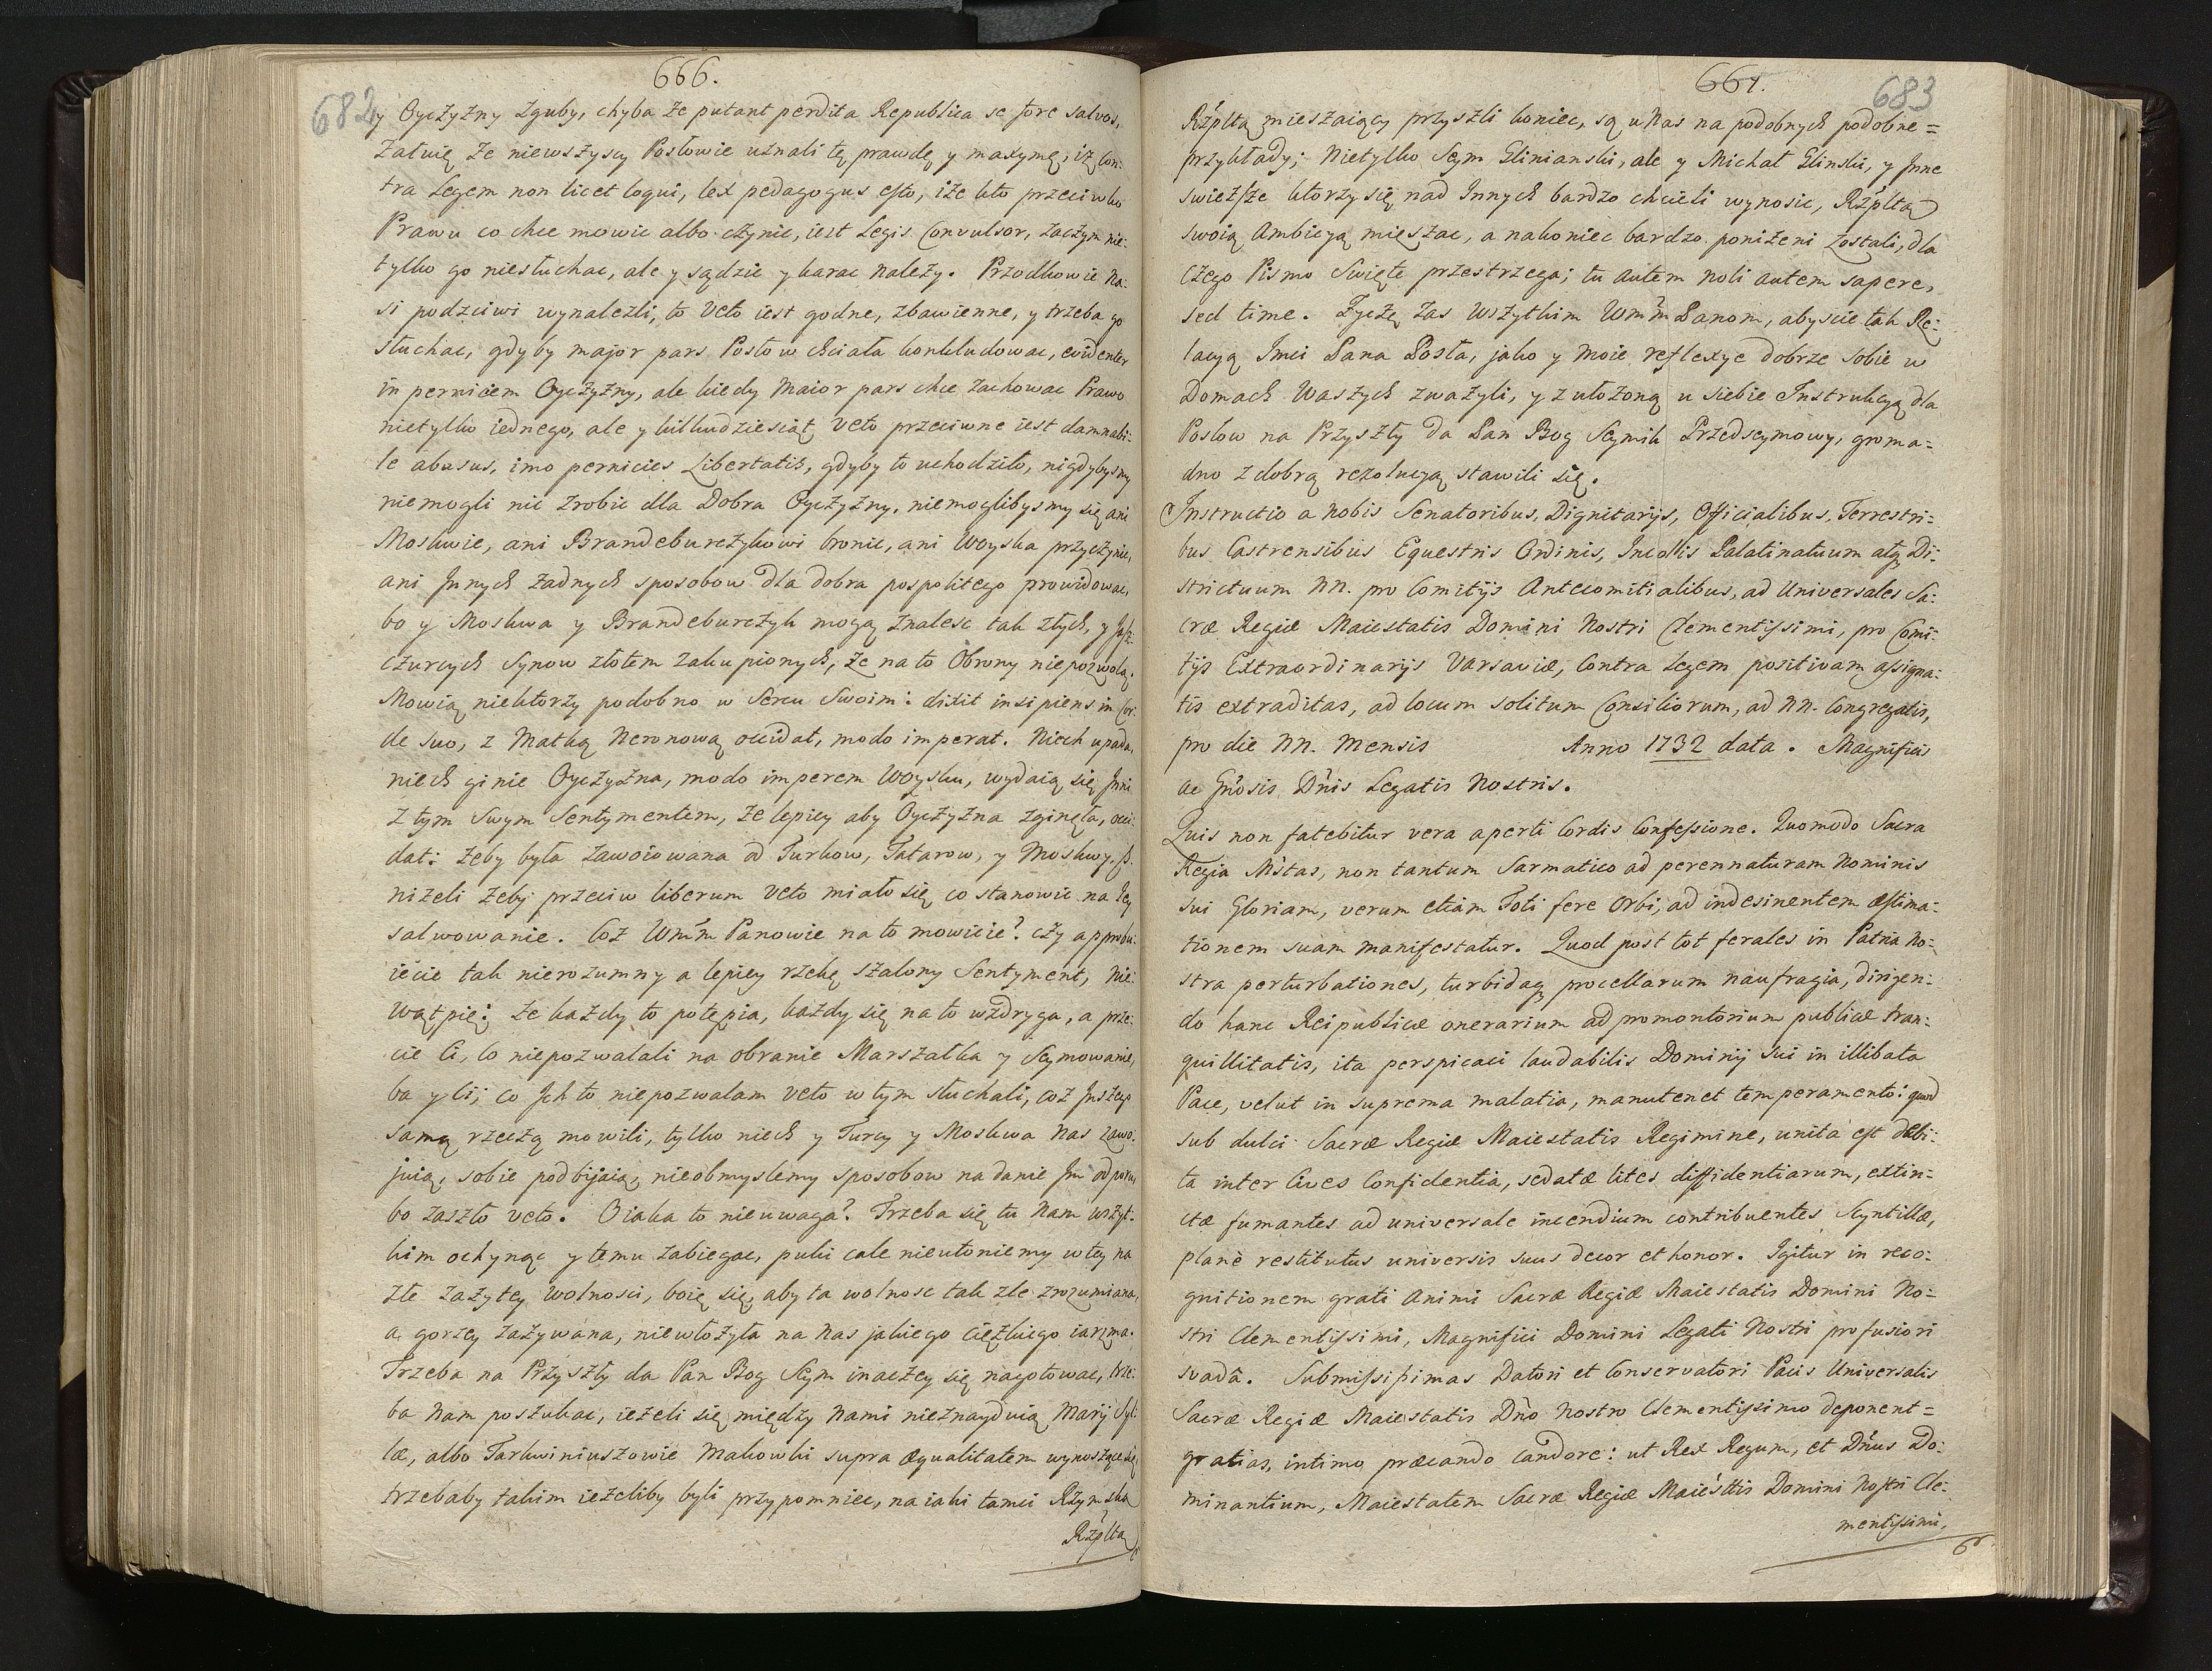 666.
682
y Oyczyzny zguby, chyba ze putant perdita Republica se fore salvos,
zatuię ze niewszyscy Posłowie uznali tę prawdę y maxymę, iż con-
tra Legem non licet loqui, lex pedagogus esto, iże kto przeciwko
Prawu co chce mowic albo czynic, iest Legis Convulsor, zaczym nie-
tylko go niesłuchac, ale y sądzic y karac należy. Przodkowie na-
si podzciwi wynalezli, to Veto iest godne, zbawienne, y trzeba go
słuchac, gdyby major pars Posłow chciała konkludowac, evidenter
in perniciem Oyczyzny, ale kiedy maior pars chce zachowac Prawo
nietylko iednego, ale y kilkudziesiąt Veto przeciwne iest damnabi-
le abusus, imo pernicies Libertatis, gdyby to uchodziło, nigdybysmy
niemogli nic zrobic dla Dobra Oyczyzny, niemoglibysmy się ani
Moskwie, ani Brandeburczykowi bronic, ani Woyska przyczynic,
ani Innych żadnych sposobow dla dobra pospolitego prowidowac,
bo y Moskwa y Brandeburczyk mogą znalesc tak złych, y Jasz-
czurczych Synow złotem zakupionych, że na to Obrony niepozwolą.
Mowią niektorzy podobno w Sercu Swoim: dixit insipiens in Cor-
de suo, z Matką Neronową occidat, modo imperat. Niech upada,
niech ginie Oyczyzna, modo imperem Woysku, wydaią się Inni
z tym Swym Sentymentem, że lepiey aby Oyczyzna zginęła, occi-
dat: żeby była zawoiowana od Turkow, Tatarow, y Moskwy.
niżeli żeby przeciw liberum veto miało się co stanowic na Jey
salwowanie. Coż Wmm Panowie na to mowicie? czy approbu-
iecie tak nierozumny a lepiey rzekę szalony Sentyment, nie-
wątpię: że każdy to potępia, każdy się na to wzdryga, a prze-
cie Ci, co niepozwalali na obranie Marszałka y Seymowanie,
ba y Ci, co Ich to niepozwalam veto w tym słuchali, coż Inszego
samą rzeczą mowili, tylko niech y Turcy y Moskwa nas zawo-
juią, sobie podbijaią, nieobmyslemy sposobow na danie Im odporu
bo zaszło veto. O iaka to nieuwaga? Trzeba się tu nam wszyt-
kim ocknąc y temu zabiegac, puki cale nieutoniemy w tey na
złe zażytey wolnosci, boię się, aby ta wolnosc tak zle zrozumiana,
a gorzey zażywana, niewłożyła na nas jakiego cięzkiego iarzma.
Trzeba na Przyszły da Pan Bog Seym inaczey się nagotowac, trze-
ba nam poszukac, ieżeli się między nami nieznayduią Marij Syl-
læ, albo Tarkwiniuszowie Makowki supra æqualitatem wynoszące się
trzebaby takim ieżeliby byli przypomniec, na iaki tamci Rzymską
Rzpltą
667.
683
Rzpltą mieszaiący przyszli koniec, są u nas na podobnych podobne=
przykłady; Nietylko Seym Glinianski, ale y Michał Glinski, y Inne
swieższe ktorzy się nad Innych bardzo chcieli wynosic, Rzpltą
swoią Ambicyą mieszac, a nakoniec bardzo poniżeni zostali, dla
czego Pismo Swięte przestrzega; tu autem noli autem sapere,
sed time. Życzę zas Wszytkim Wmm Panom, abyscie tak Re-
lacyą Imci Pana Posła, jako y moie reflexye dobrze sobie w
Domach Waszych zważyli, y z ułożoną u siebie Instrukcyą dla
Posłow na Przyszły da Pan Bog Seymik Przedseymowy, groma=
dno z dobrą rezolucyą stawili się.
Instructio a nobis Senatoribus, Dignitarijs, Officialibus, Terrestri-
bus Castrensibus Equestris Ordinis, Incolis Palatinatuum atq; Di-
strictuum NN. pro Comitijs Antecomitialibus, ad Universales Sa-
cræ Regiæ Maiestatis Domini Nostri Clementissimi, pro Comi-
tijs Extraordinarijs Varsaviæ, Contra Legem positivam assigna-
tis extraditas, ad locum solitum Consiliorum, ad NN. Congregatis,
pro die NN. Mensis Anno 1732 data. Magnificis
ac Gnosis Dnis Legatis Nostris.
Quis non fatebitur vera aperti Cordis Confessione. Quomodo Sacra
Regia Mstas, non tantum Sarmatico ad perennaturam Nominis
sui Gloriam, verum etiam Toti fere Orbi, ad indesinentem æstima-
tionem suam manifestatur. Quod post tot ferales in Patria no-
stra perturbationes, turbidaq; procellarum naufragia, dirigen-
do hanc Reipublicæ onerarium ad promontorium publicæ tran-
quillitatis, ita perspicaci laudabilis Dominij sui in illibata
Pace, velut in suprema malatia, manutenet temperamento: quod
sub dulci Sacræ Regiæ Maiestatis Regimine, unita est debi-
ta inter Cives Confidentia, sedatæ lites diffidentiarum, extin=
ctæ fumantes ad universale incendium contribuentes Scyntillæ,
planè restitutus universis suus decor et honor. Igitur in reco-
gnitionem grati Animi Sacræ Regiæ Maiestatis Domini No-
stri Clementissimi, Magnifici Domini Legati Nostri profusiori
svadâ. Submississimas Datori et Conservatori Pacis Universalis
Sacræ Regiæ Maiestatis Dno Nostro Clementissimo deponent=
gratias, intimo præcando candore: ut Rex Regum, et Dnus Do-
minantium, Maiestatem Sacræ Regiæ Maiesttis Domini Nostri Cle-
mentissimi,